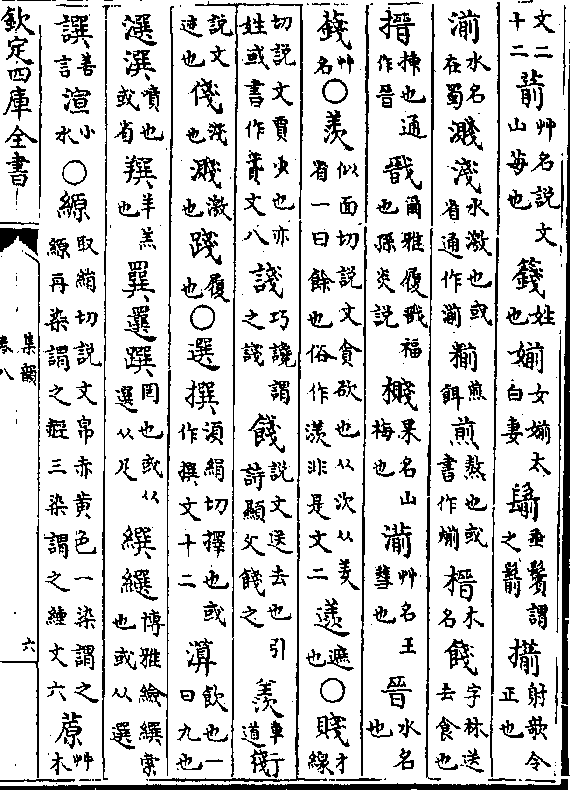 文二十二 葥 艸名說文山莓也 籛 姓也 媊 女媊太白妻 鬋 垂鬢謂之鬋 揃 射歌令正也
湔 水名在蜀 濺淺 水激也或省通作湔 糋 煎餌 煎 熬也或書作煎 榗 木名 餞 字林送去食也
搢 揷也通作晉 戩 爾雅履戩福也孫炎說 樧 果名山梅也 艸名王彗也 晉 水名也
艸名 ○羨 似面切說文貪欲也从次从羑省一曰餘也俗作羡非是文二 遮也 ○賤 才線
切說文賈少也亦姓或書作文八 諓 巧讒謂之諓 餞 說文送去也引詩顯父餞之 羨 車行道
說文迹也 俴 淺也 濺 激也 踐 履也 ○選撰 須絹切擇也或作撰文十二 㵀 飲也一曰九也
潠 噀也或省 羊羔也 罥也或从選从足 繏 博雅繪繏索也或从選
譔 善言 渲 小水 ○縓 取絹切說文帛赤黃色一染謂之縓再染謂之赬三染謂之纁文六 艸木
欽定四庫全書
集韻
卷八
六